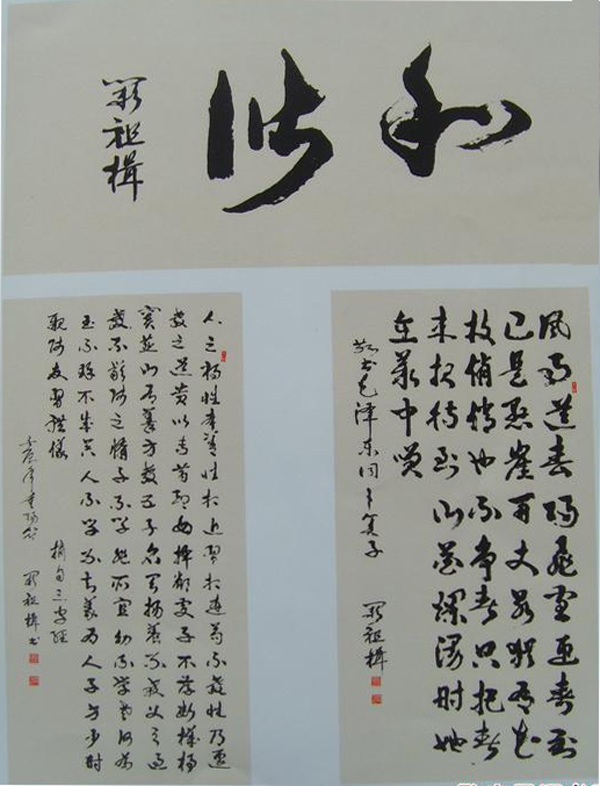 和谐
风雨送春归飞雪迎春到
已是悬崖百丈冰犹有花
枝俏俏也不争春只把春
来报待到山花烂漫时她
在丛中笑
敬书毛泽东同志卜算子
人之初性本善性相近習相遠苟不教性乃遷
教之道貴以專昔孟母擇鄰處子不學斷機杼
竇燕山有義方教五子名俱揚養不教父之過
教不嚴師之惰子不學非所宜幼不學老何為
玉不琢不成器人不學不知義為人子方少時
親師友習禮儀
摘句三字经